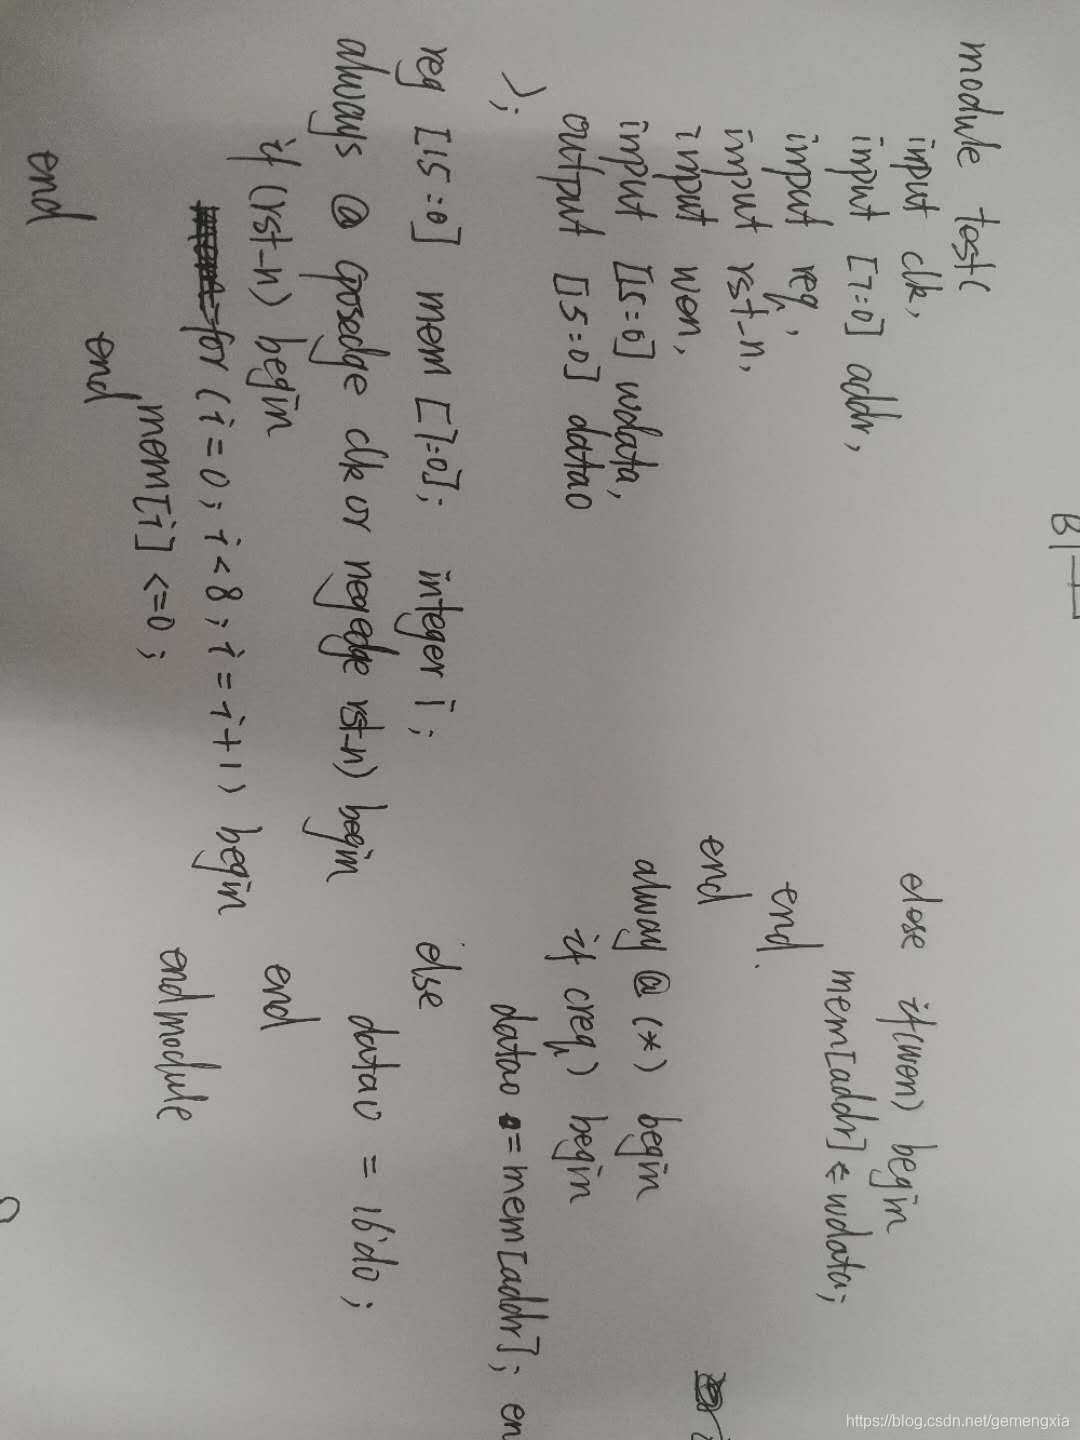 module test(
input clk,
input [7:0] addr,
input req,
input rst-n,
input wen,
input [15:0] wdata,
output [15:0] datao
);
reg [15:0] mem [7:0]; integer i;
always @ (posedge clk or negedge rst-n) begin
if (rst-n) begin
for (i=0; i<8; i=i+1) begin
mem[i] <=0;
end
end
else if(wen) begin
mem[addr] <= wdata;
end.
end
alway @ (*) begin
if (req) begin
datao = mem[addr]; en
else
datao = 16'd0;
end
endmodule
https://blog.csdn.net/gemengxia